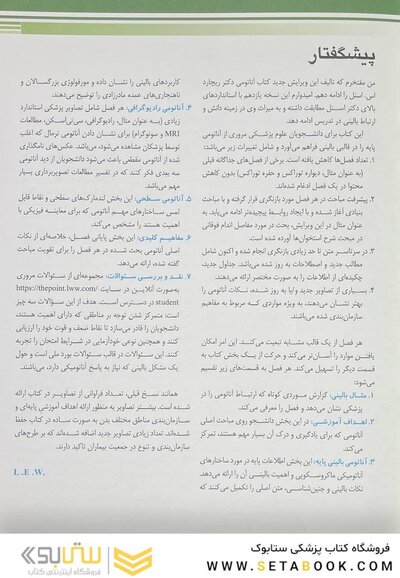 پیشگفتار
من مفتخرم که تالیف این ویرایش جدید کتاب آناتومی دکتر ریچارد
اس. اسنل را ادامه دهم. امیدوارم این نسخه یازدهم با استانداردهای
بالای دکتر اسنل مطابقت داشته و به میراث وی در زمینه دانش و
ارتباط بالینی در تدریس ادامه دهد.
این کتاب برای دانشجویان علوم پزشکی مروری از آناتومی
پایه را در قالب بالینی فراهم می‌آورد و شامل تغییرات زیر می‌باشد:
۱. تعداد فصل‌ها کاهش یافته است. برخی از فصل‌های جداگانه قبلی
(به عنوان مثال، دیواره توراکس و حفره توراکس) بدون کاهش
محتوا در یک فصل ادغام شده‌اند.
۲. پیشرفت مباحث در هر فصل مورد بازنگری قرار گرفته و با مباحث
بنیادی آغاز شده و با ایجاد روابط پیچیده‌تر ادامه می‌یابد. به
عنوان مثال در این ویرایش، بحث در مورد مفاصل اندام فوقانی
در مبحث شرح استخوان‌ها آورده شده است.
۳. در سرتاسر متن تا حد زیادی بازنگری انجام شده و اکنون شامل
مطالب جدید و اصطلاحات به روز شده می‌باشد. جداول جدید،
چکیده‌ای از اطلاعات را به صورت مختصر ارائه می‌دهند.
۴. بسیاری از تصاویر جدید و/یا به روز شده، نکات آناتومی را
بهتر نشان می‌دهند، به ویژه مواردی که مربوط به مفاهیم
سازمان‌بندی شده می‌باشند.
هر فصل از یک قالب مشابه تبعیت می‌کند. این امر امکان
یافتن موارد را آسان‌تر می‌کند و حرکت از یک بخش کتاب به
قسمت دیگر را تسهیل می‌کند. هر فصل به قسمت‌های زیر تقسیم
می‌شود:
۱. مثال بالینی: گزارش موردی کوتاه که ارتباط آناتومی را در
پزشکی نشان می‌دهد و فصل را معرفی می‌کند.
۲. اهداف آموزشی: در این بخش دانشجو روی مباحث اصلی
آناتومی که برای یادگیری و درک آن بسیار مهم هستند، تمرکز
می‌کند.
۳. آناتومی بالینی پایه: این بخش اطلاعات پایه در مورد ساختارهای
آناتومیک ماکروسکوپی و اهمیت بالینی آن را ارائه می‌دهد.
نکات بالینی و جنین‌شناسی، متن اصلی را تکمیل می‌کنند که
کاربردهای بالینی را نشان داده و مورفولوژی بزرگسالان و
ناهنجاری‌های عمده مادرزادی را توضیح می‌دهند.
۴. آناتومی رادیوگرافی: هر فصل شامل تصاویر پزشکی استاندارد
زیادی (به عنوان مثال، رادیوگرافی، سی‌تی‌اسکن، مطالعات
MRI و سونوگرام) برای نشان دادن آناتومی نرمال که اغلب
توسط پزشکان مشاهده می‌شود، می‌باشد. عکس‌های نامگذاری
شده از آناتومی مقطعی باعث می‌شود دانشجویان از دید آناتومی
سه بعدی فکر کنند که در تفسیر مطالعات تصویربرداری بسیار
مهم می‌باشد.
۵. آناتومی سطحی: این بخش لندمارک‌های سطحی و نقاط قابل
لمس ساختارهای مهم آناتومی که برای معاینه فیزیکی با
اهمیت هستند را مشخص می‌کند.
۶. مفاهیم کلیدی: این بخش پایانی فصل، خلاصه‌ای از نکات
اصلی آناتومی بحث شده در هر فصل را برای تقویت مباحث
گفته شده، ارائه می‌دهد.
۷. نقد و بررسی سئوالات: مجموعه‌ای از سئوالات مروری
به‌صورت آنلاین در سایت https://thepoint.lww.com/
student در دسترس است. هدف از این سؤالات سه چیز
است: متمرکز شدن توجه بر مناطقی که دارای اهمیت هستند،
دانشجویان را قادر می‌سازد تا نقاط ضعف و قوت خود را ارزیابی
کنند، و همچنین نوعی خودآزمایی در شرایط امتحان را تجربه
کنند. این سئوالات در قالب سئوالات بورد ملی است و حول
یک مشکل بالینی که نیاز به پاسخ آناتومیکی دارد، می‌باشد.
همانند نسخ قبلی، تعداد فراوانی از تصاویر در کتاب ارائه
شده است. بیشتر تصاویر به منظور ارائه اهداف آموزشی پایه‌ای و
سازمان‌بندی مناطق مختلف بدن به صورت ساده در کتاب حفظ
شده‌اند. تعداد زیادی تصاویر جدید اضافه شده‌اند که بر طرح‌های
سازمان‌بندی و تنوع در جمعیت بیماران تاکید دارند.
L .E .W.
فروشگاه کتاب پزشکی ستابوک
WWW.SETABOOK.COM
ستابوک
فروشگاه اینترنتی کتاب